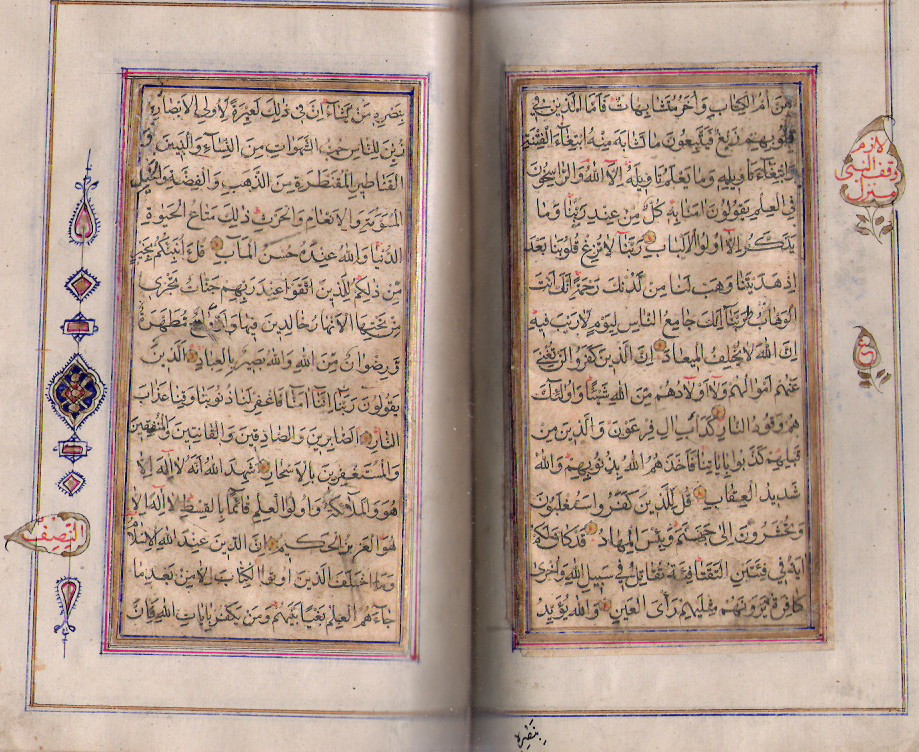 هن ام الكتاب واخر متشابهات فاما الذين في
قلوبهم زيغ فيتبعون ما تشابه منه ابتغاء الفتنة
وابتغاء تاويله وما يعلم تاويله الا الله والراسخون
في العلم يقولون امنا به كل من عند ربنا وما
يذكر الا اولوا الالباب ربنا لا تزغ قلوبنا بعد
اذ هديتنا وهب لنا من لدنك رحمة انك انت
الوهاب ربنا انك جامع الناس ليوم لا ريب فيه
ان الله لا يخلف الميعاد ان الذين كفروا لن تغني
عنهم اموالهم ولا اولادهم من الله شيئا واولئك
هم وقود النار كداب ال فرعون والذين من
قبلهم كذبوا باياتنا فاخذهم الله بذنوبهم والله
شديد العقاب قل للذين كفروا ستغلبون
وتحشرون الى جهنم وبئس المهاد قد كان لكم
اية في فئتين التقتا فئة تقاتل في سبيل الله واخرى
كافرة يرونهم مثليهم راى العين والله يؤيد
لازم
وقف النبي
منزل
بنصره
بنصره من يشاء ان في ذلك لعبرة لاولي الابصار
زين للناس حب الشهوات من النساء والبنين و
القناطير المقنطرة من الذهب والفضة والخيل
المسومة والانعام والحرث ذلك متاع الحيوة
الدنيا والله عنده حسن الماب قل اانبئكم بخير
من ذلكم للذين اتقوا عند ربهم جنات تجري
من تحتها الانهار خالدين فيها وازواج مطهرة
ورضوان من الله والله بصير بالعباد الذين
يقولون ربنا اننا امنا فاغفر لنا ذنوبنا وقنا عذاب
النار الصابرين والصادقين والقانتين والمنفقين
والمستغفرين بالاسحار شهد الله انه لا اله الا
هو والملائكة واولوا العلم قائما بالقسط لا اله الا
هو العزيز الحكيم ان الدين عند الله الاسلام
وما اختلف الذين اوتوا الكتاب الا من بعد ما
جاءهم العلم بغيا بينهم ومن يكفر بايات الله فان
النصف